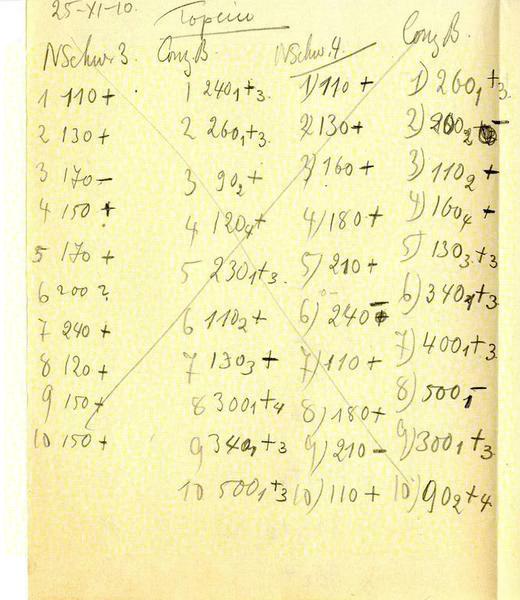 25-XI-10.
NSchw. 3. Conz B. NSchw. 4. Conz B.
1 110+ 1 240₁+3. 1) 110+ 1) 260₁+3.
2 130+ 2 260₁+3. 2) 130+ 2)
3 170- 3 90₂+ 3) 160+ 3) 110₂+
4 150+ 4 120₄+ 4) 180+ 4) 160₄+
5 170+ 5 230₁+3. 5) 210+ 5) 130₃+3
6 200? 6 110₂+ 6) 240 6) 340₁+3
7 240+ 7 130₃+ 7) 110+ 7) 400₁+3
8 120+ 8 300₁+4 8) 180+ 8) 500₁-
9 150+ 9 340₁+3 9) 210- 9) 300₁+3
10 150+ 10 500₁+3 10) 110+ 10) 90₂+4